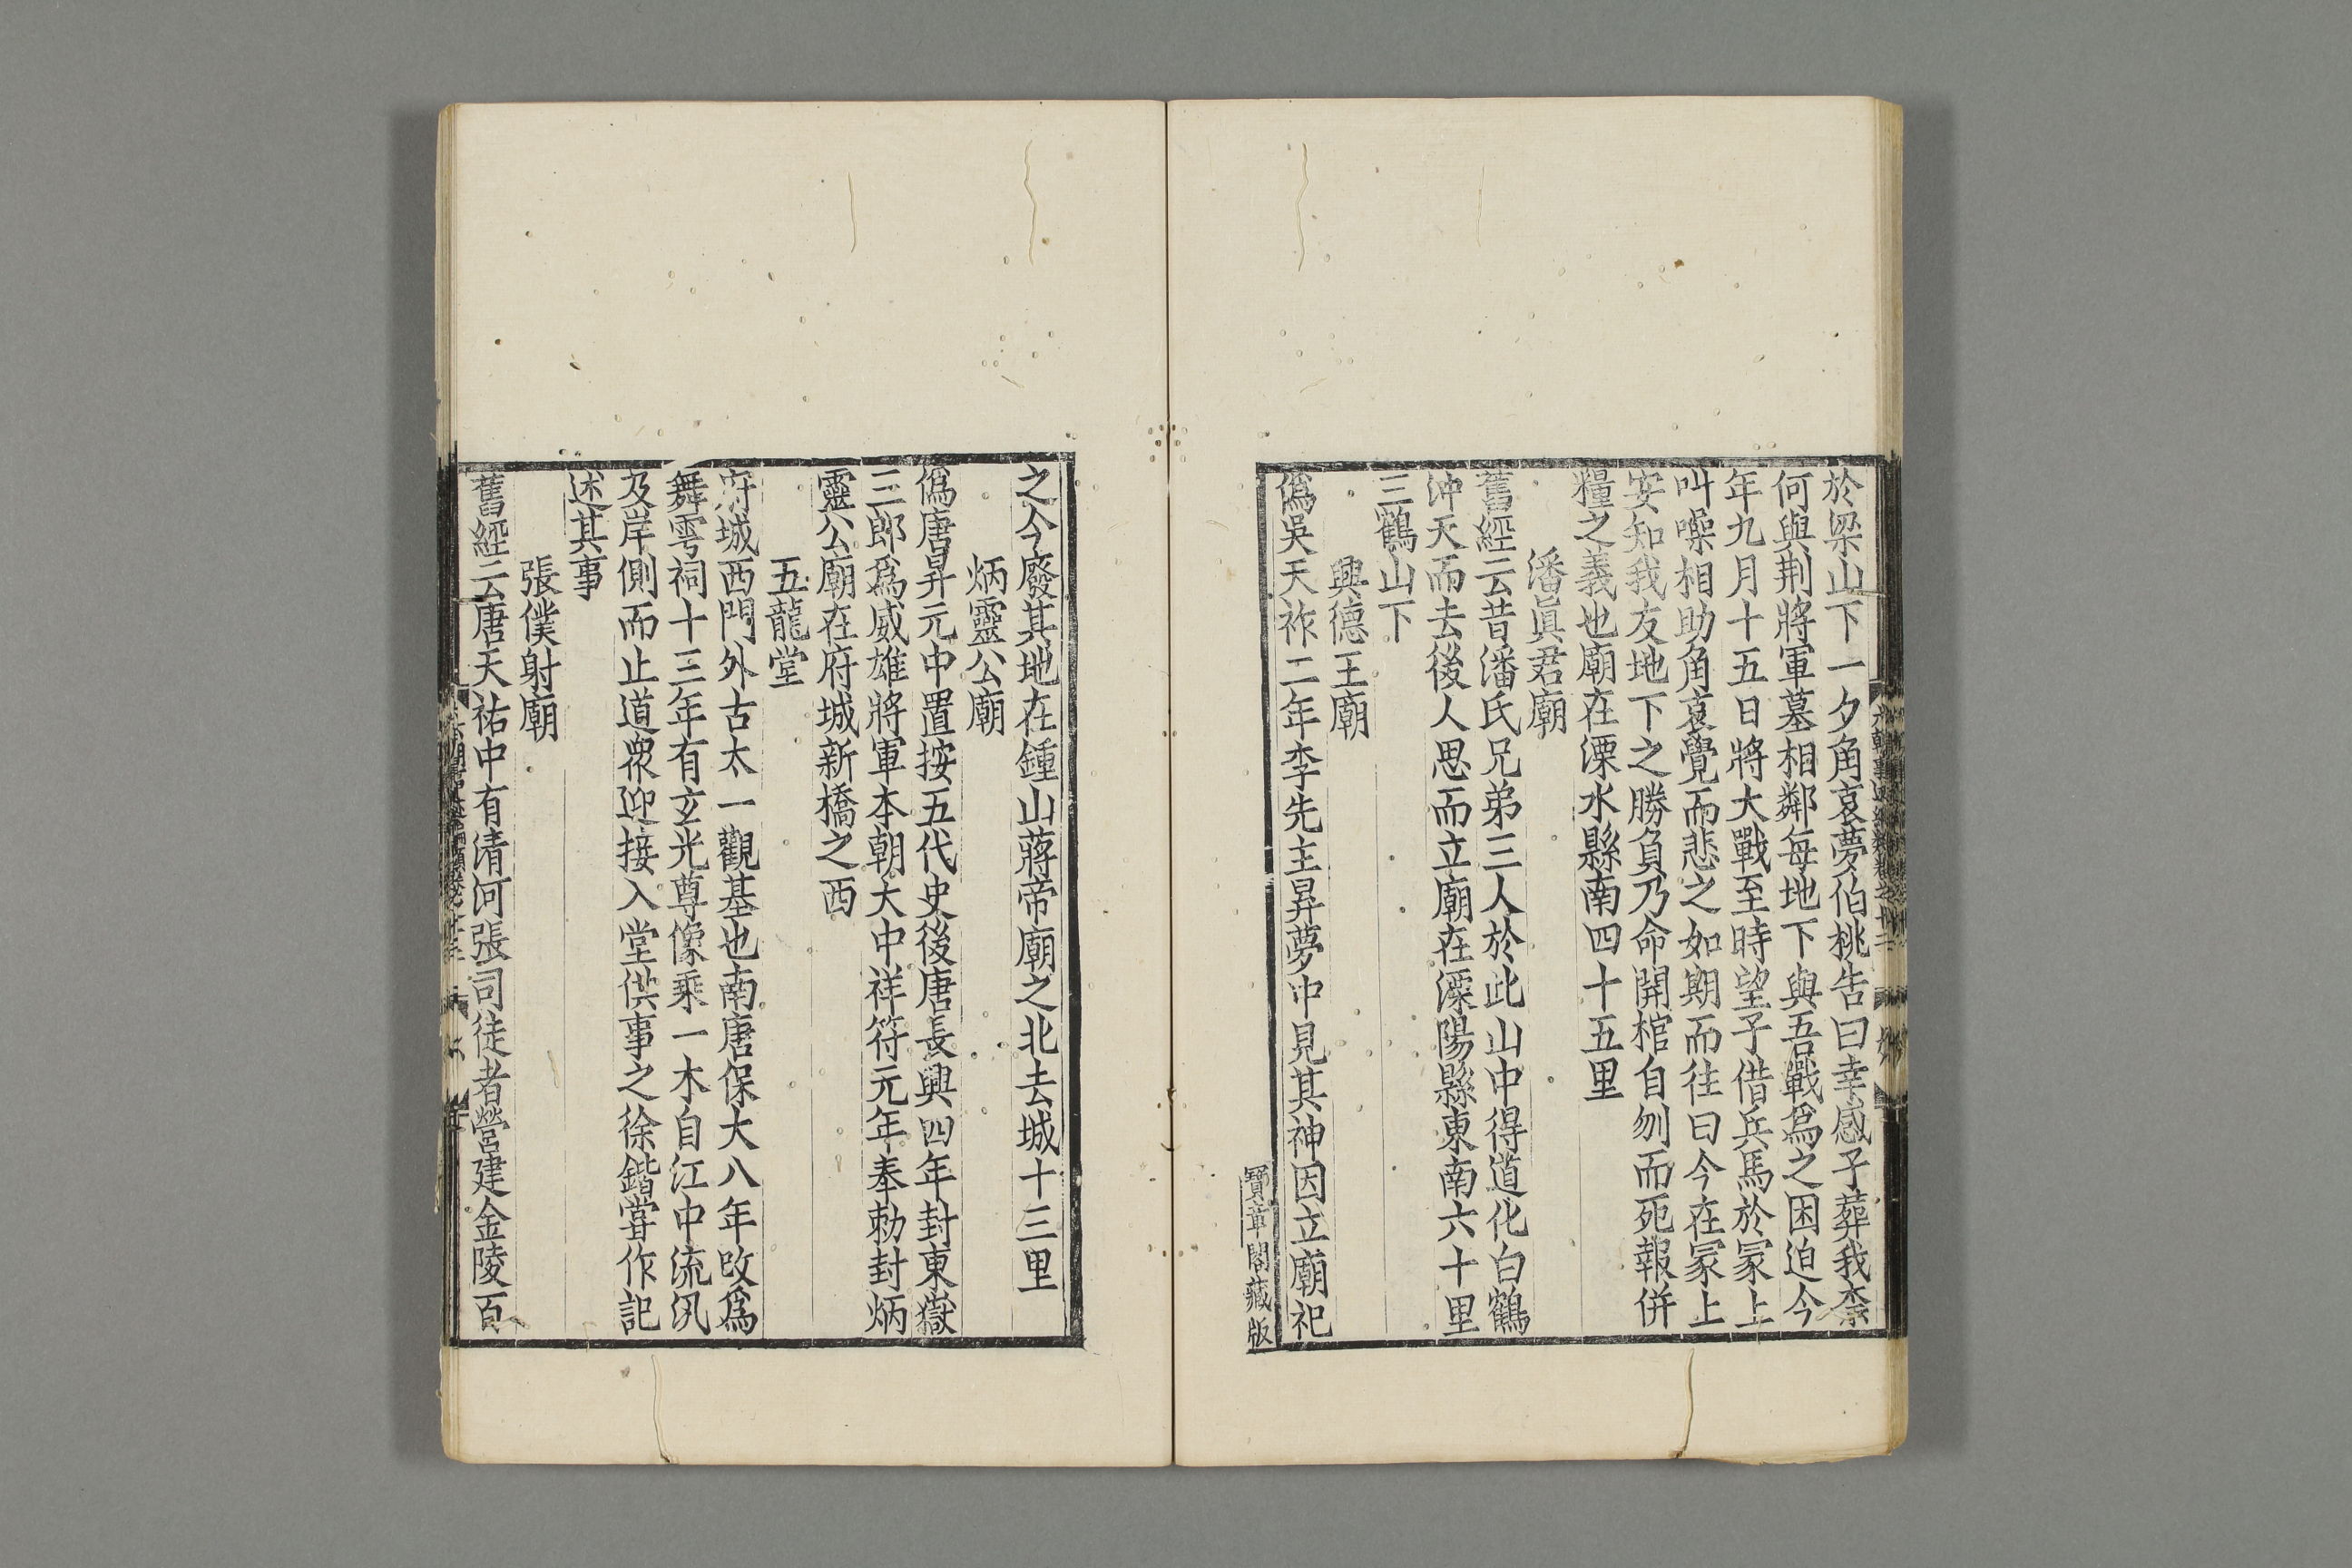 於梁山下一夕角哀夢伯桃告曰幸感子葬我柰
何與荆將軍墓相鄰每地下與吾戰爲之困迫今
年九月十五日將大戰至時望子借兵馬於冢上
叫噪相助角哀覺而悲之如期而往曰今在冢上
安知我友地下之勝負乃命開棺自刎而死報併
糧之義也廟在溧水縣南四十五里
潘眞君廟
舊經云昔潘氏兄弟三人於此山中得道化白鶴
沖天而去後人思而立廟在溧陽縣東南六十里
三鶴山下
興德王廟
僞吳天祚二年李先主昇夢中見其神因立廟祀
寶章閣藏版
之今廢其地在鍾山蔣帝廟之北去城十三里
炳靈公廟
僞唐昇元中置按五代史後唐長興四年封東嶽
三郎爲威雄將軍本朝大中祥符元年奉勑封炳
靈公廟在府城新橋之西
五龍堂
府城西門外古太一觀基也南唐保大八年改爲
舞雩祠十三年有玄光尊像乘一木自江中流汎
及岸側而止道衆迎接入堂供事之徐鍇嘗作記
述其事
張僕射廟
舊經云唐天祐中有清河張司徒者營建金陵百